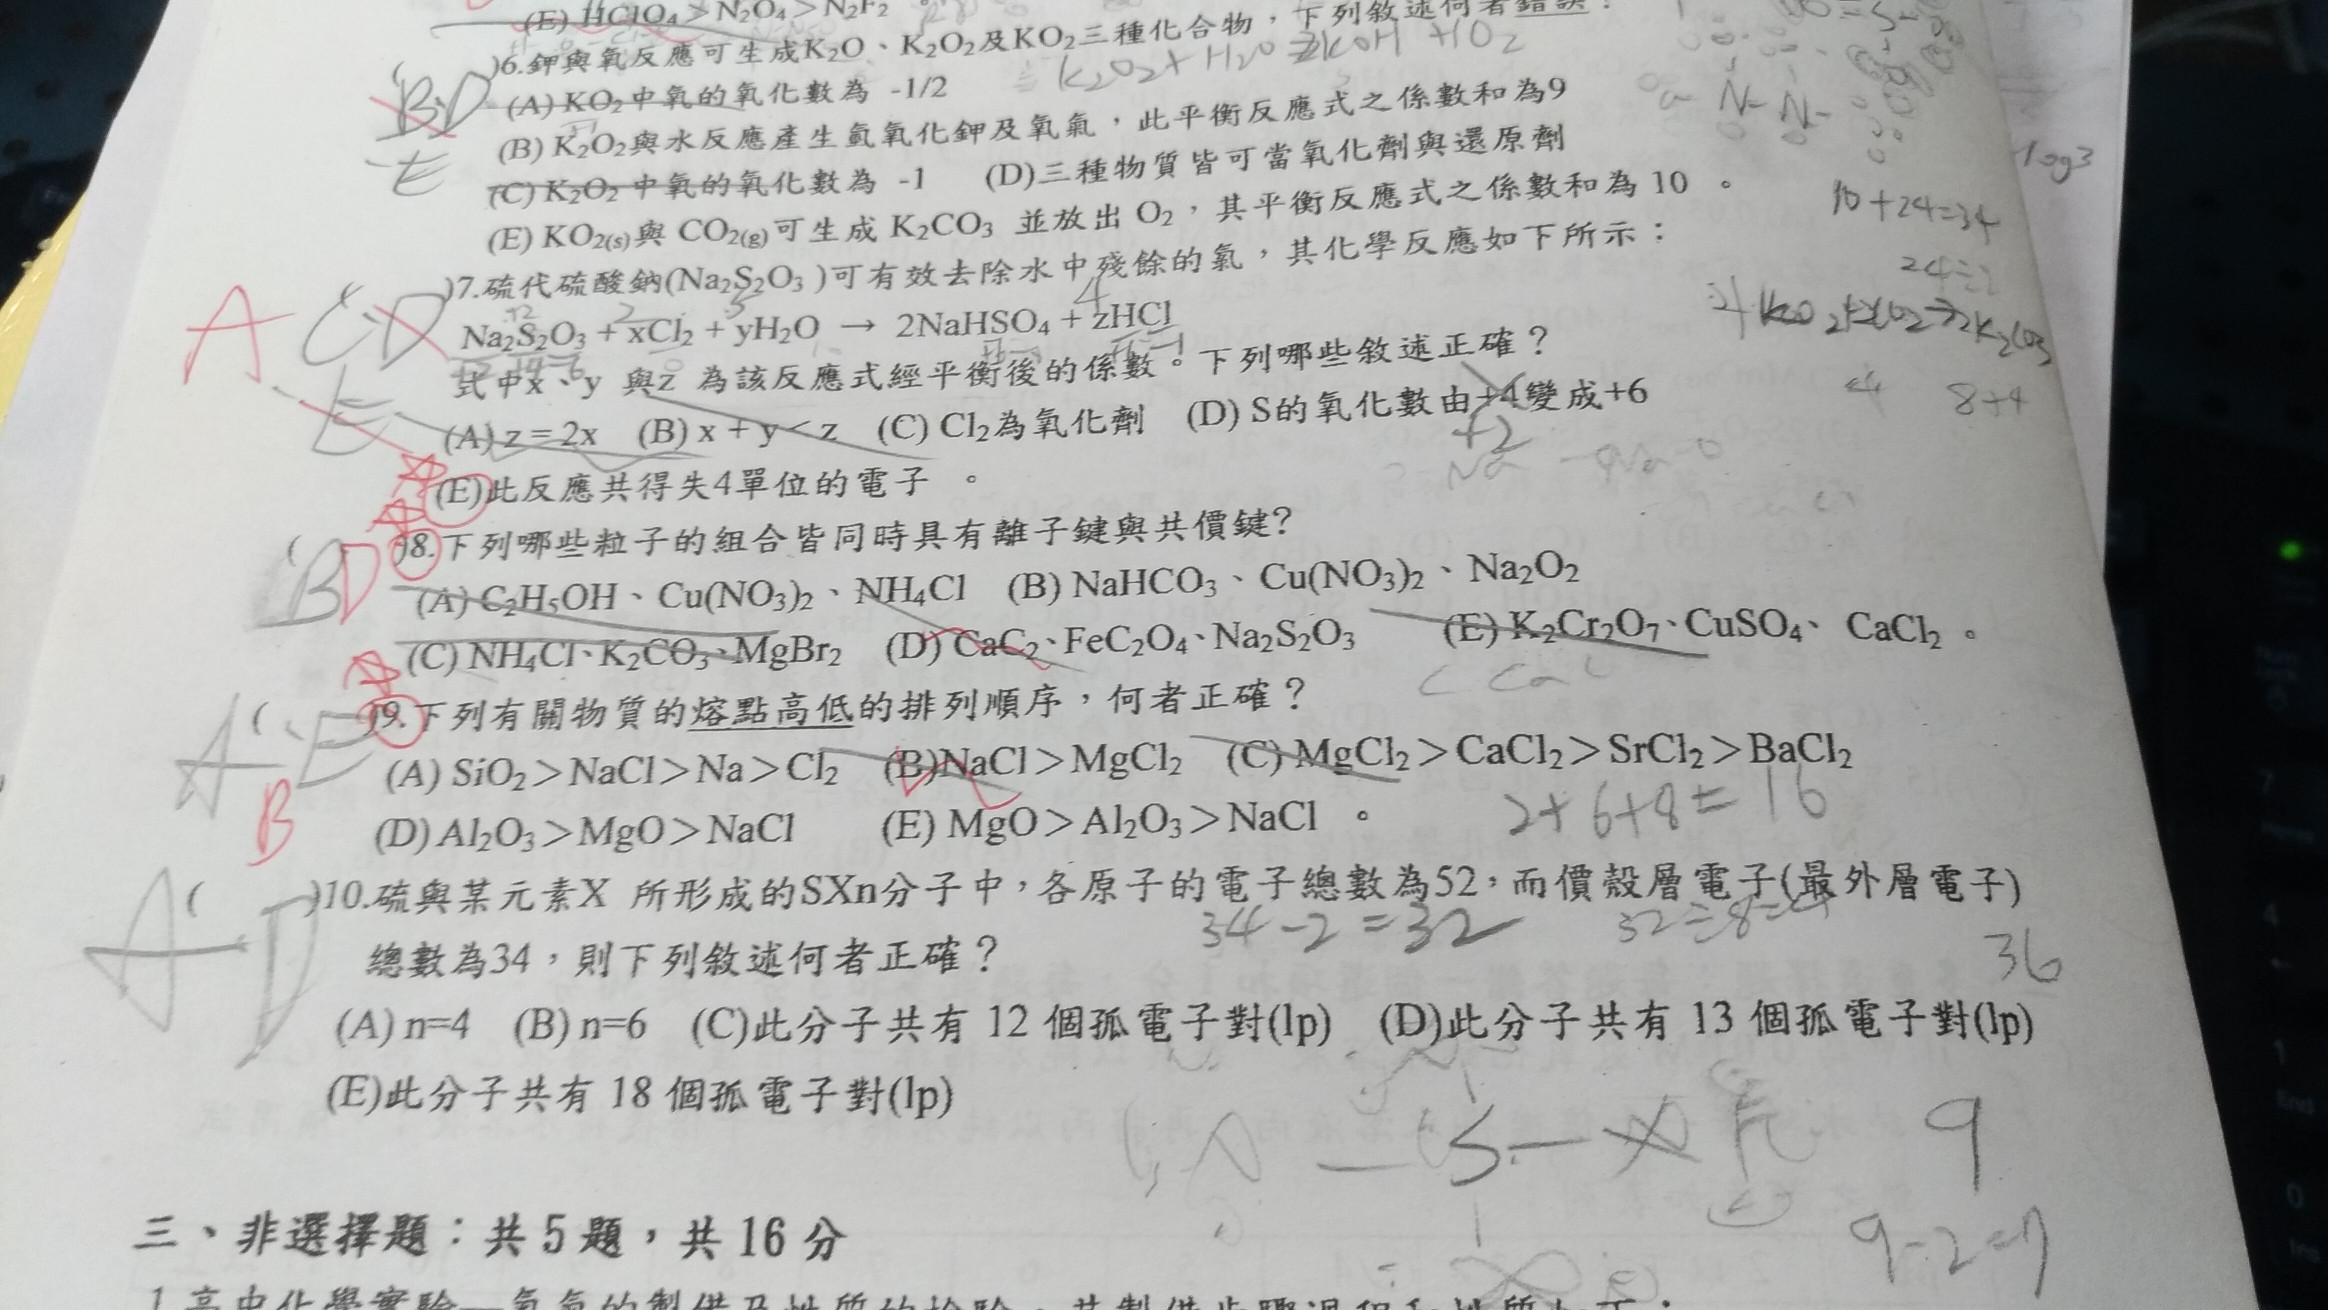 (E) HClO₄＞N₂O₄＞N₂F₂。
)6.鉀與氧反應可生成K₂O、K₂O₂及KO₂三種化合物，下列敘述何者錯誤？
K₂O₂+H₂O ⇌2KOH +O₂
BD
E
(A) KO₂中氧的氧化數為 -1/2
(B) K₂O₂與水反應產生氫氧化鉀及氧氣，此平衡反應式之係數和為9
(C) K₂O₂中氧的氧化數為 -1 (D)三種物質皆可當氧化劑與還原劑
(E) KO₂(s)與 CO₂(g)可生成 K₂CO₃ 並放出 O₂，其平衡反應式之係數和為 10 。
log3
10+24=34
)7.硫代硫酸鈉(Na₂S₂O₃ )可有效去除水中殘餘的氯，其化學反應如下所示：
A CD
E
Na₂S₂O₃ + xCl₂ + yH₂O → 2NaHSO₄ + zHCl
式中x、y 與z 為該反應式經平衡後的係數。下列哪些敘述正確？
8+4
(A) z = 2x (B) x + y < z (C) Cl₂為氧化劑 (D) S的氧化數由+4變成+6
+2
(E)此反應共得失4單位的電子 。
( )8.下列哪些粒子的組合皆同時具有離子鍵與共價鍵?
BD
(A) C₂H₅OH、Cu(NO₃)₂、NH₄Cl (B) NaHCO₃、Cu(NO₃)₂、Na₂O₂
(C) NH₄Cl、K₂CO₃、MgBr₂ (D) CaC₂、FeC₂O₄、Na₂S₂O₃ (E) K₂Cr₂O₇、CuSO₄、 CaCl₂ 。
( )9.下列有關物質的熔點高低的排列順序，何者正確？
A E
B
(A) SiO₂＞NaCl＞Na＞Cl₂ (B)NaCl＞MgCl₂ (C) MgCl₂＞CaCl₂＞SrCl₂＞BaCl₂
(D) Al₂O₃＞MgO＞NaCl (E) MgO＞Al₂O₃＞NaCl 。
2+6+8=16
( )10.硫與某元素X 所形成的SXn分子中，各原子的電子總數為52，而價殼層電子(最外層電子)
AD
34-2=32 32÷8=4
總數為34，則下列敘述何者正確？
36
(A) n=4 (B) n=6 (C)此分子共有 12 個孤電子對(lp) (D)此分子共有 13 個孤電子對(lp)
(E)此分子共有 18 個孤電子對(lp)
9
9-2=7
三、非選擇題：共 5 題，共 16 分